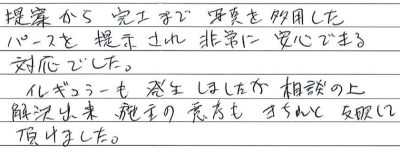 提案から 完工まで 写真を多用した
パースを 提示され 非常に 安心できる
対応でした。
イレギュラーも 発生しましたが 相談の上
解決出来 施主の意向も きちんと 反映して
頂けました。